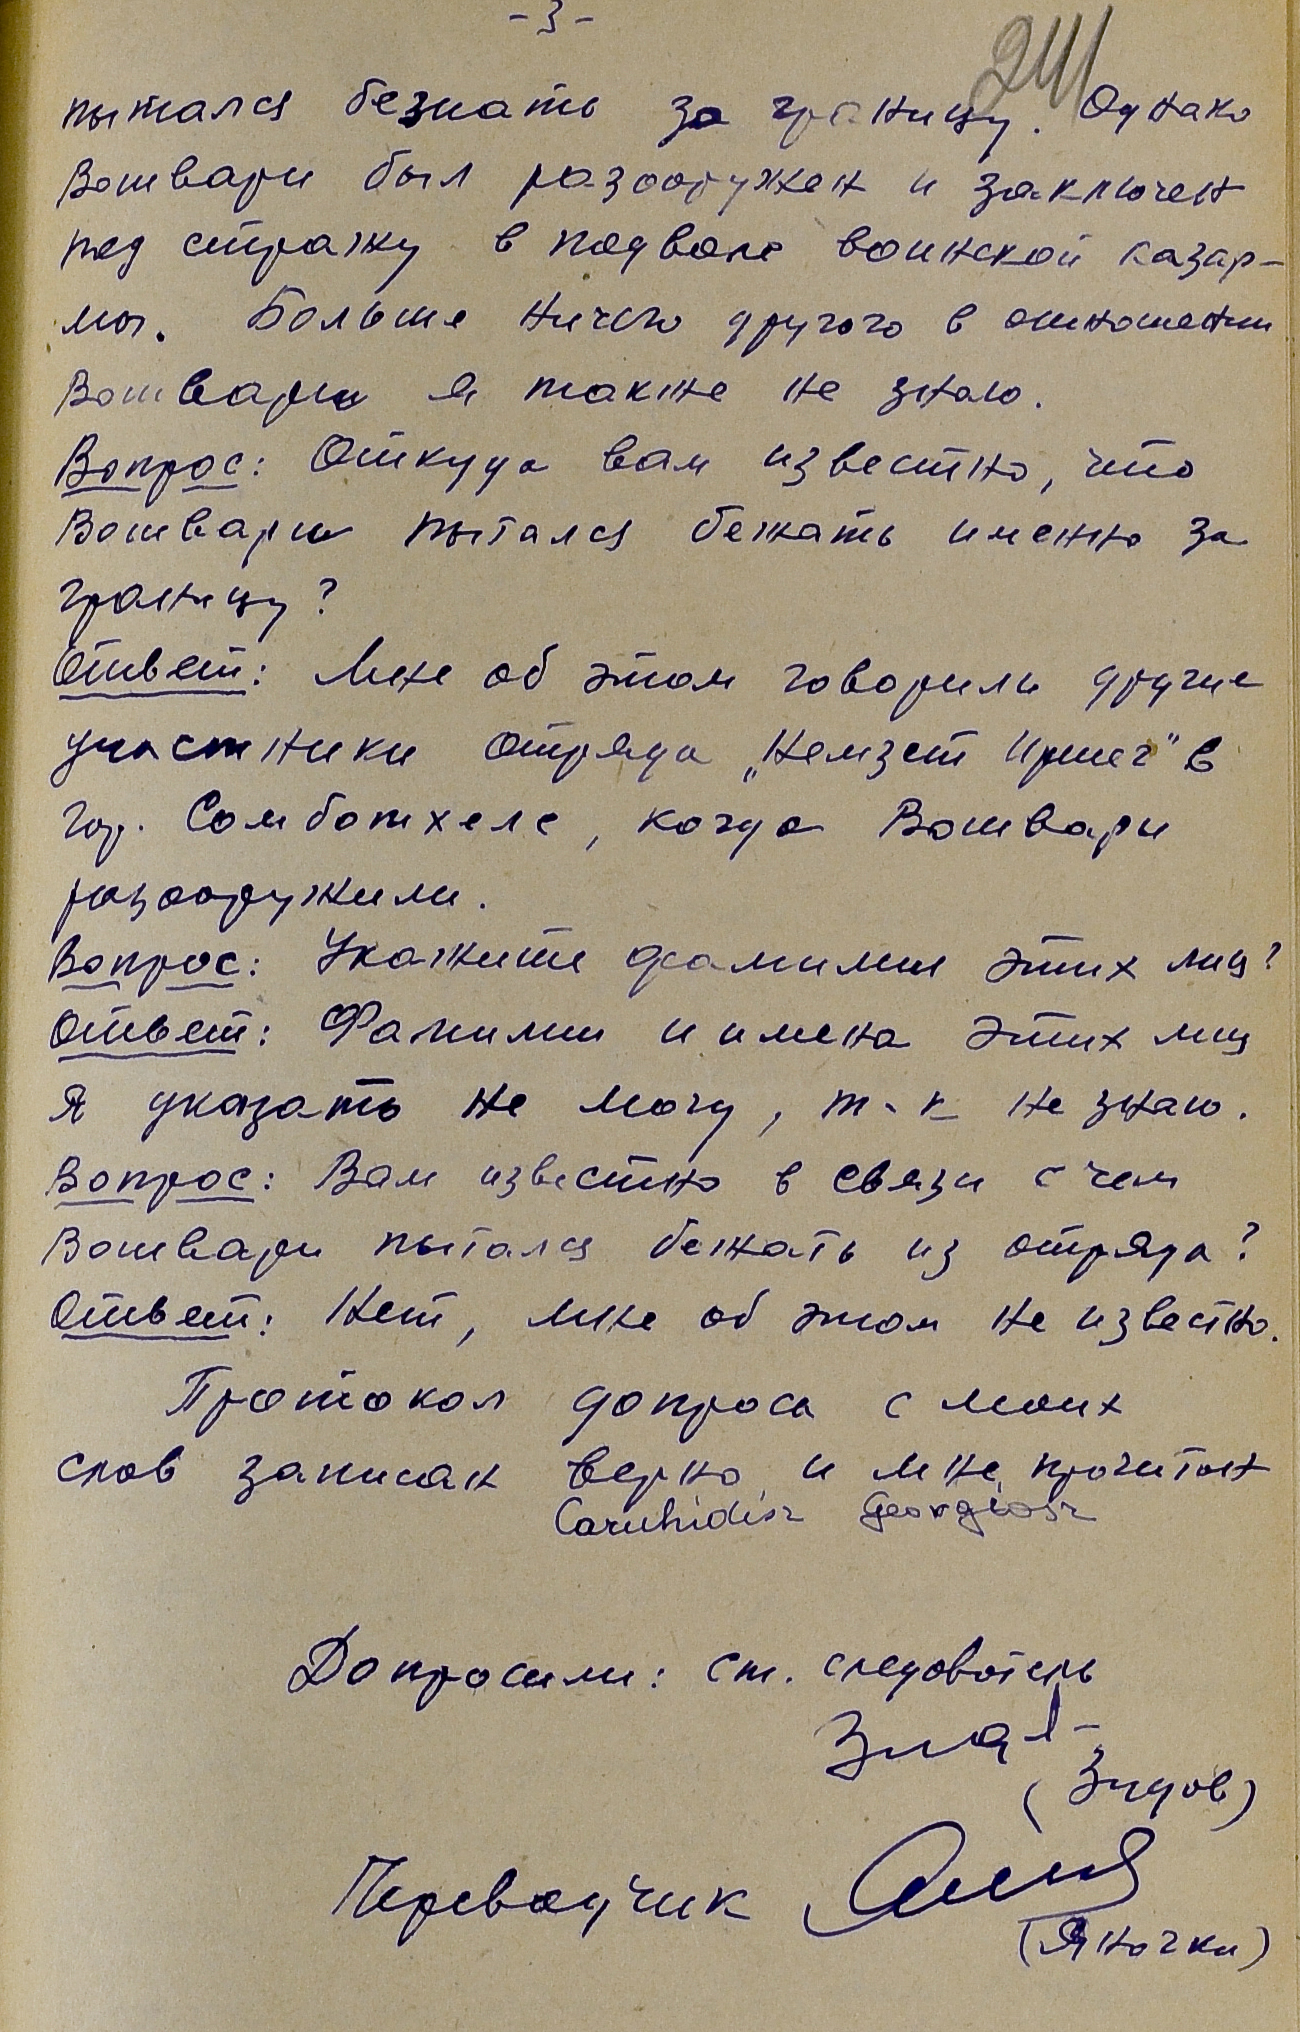 - 3 -
241
пытался бежать за границу. Однако
Вошвари был разооружен и заключен
под стражу в подвале воинской казар-
мы. Больше ничего другого в отношении
Вошвари я также не знаю.
Вопрос: Откуда вам известно, что
Вошвари пытался бежать именно за
границу?
Ответ: Мне об этом говорили другие
участники отряда „Немзет
в
гор. Сомботхеле, когда Вошвари
разооружили.
Вопрос: Укажите фамилии этих лиц?
Ответ: Фамилии и имена этих лиц
я указать не могу, т-к не знаю.
Вопрос: Вам известно в связи с чем
Вошвари пытался бежать из отряда?
Ответ: Нет, мне об этом не известно.
Протокол допроса с моих
слов записан верно и мне прочитан
Допросили: ст. следователь
Переводчик